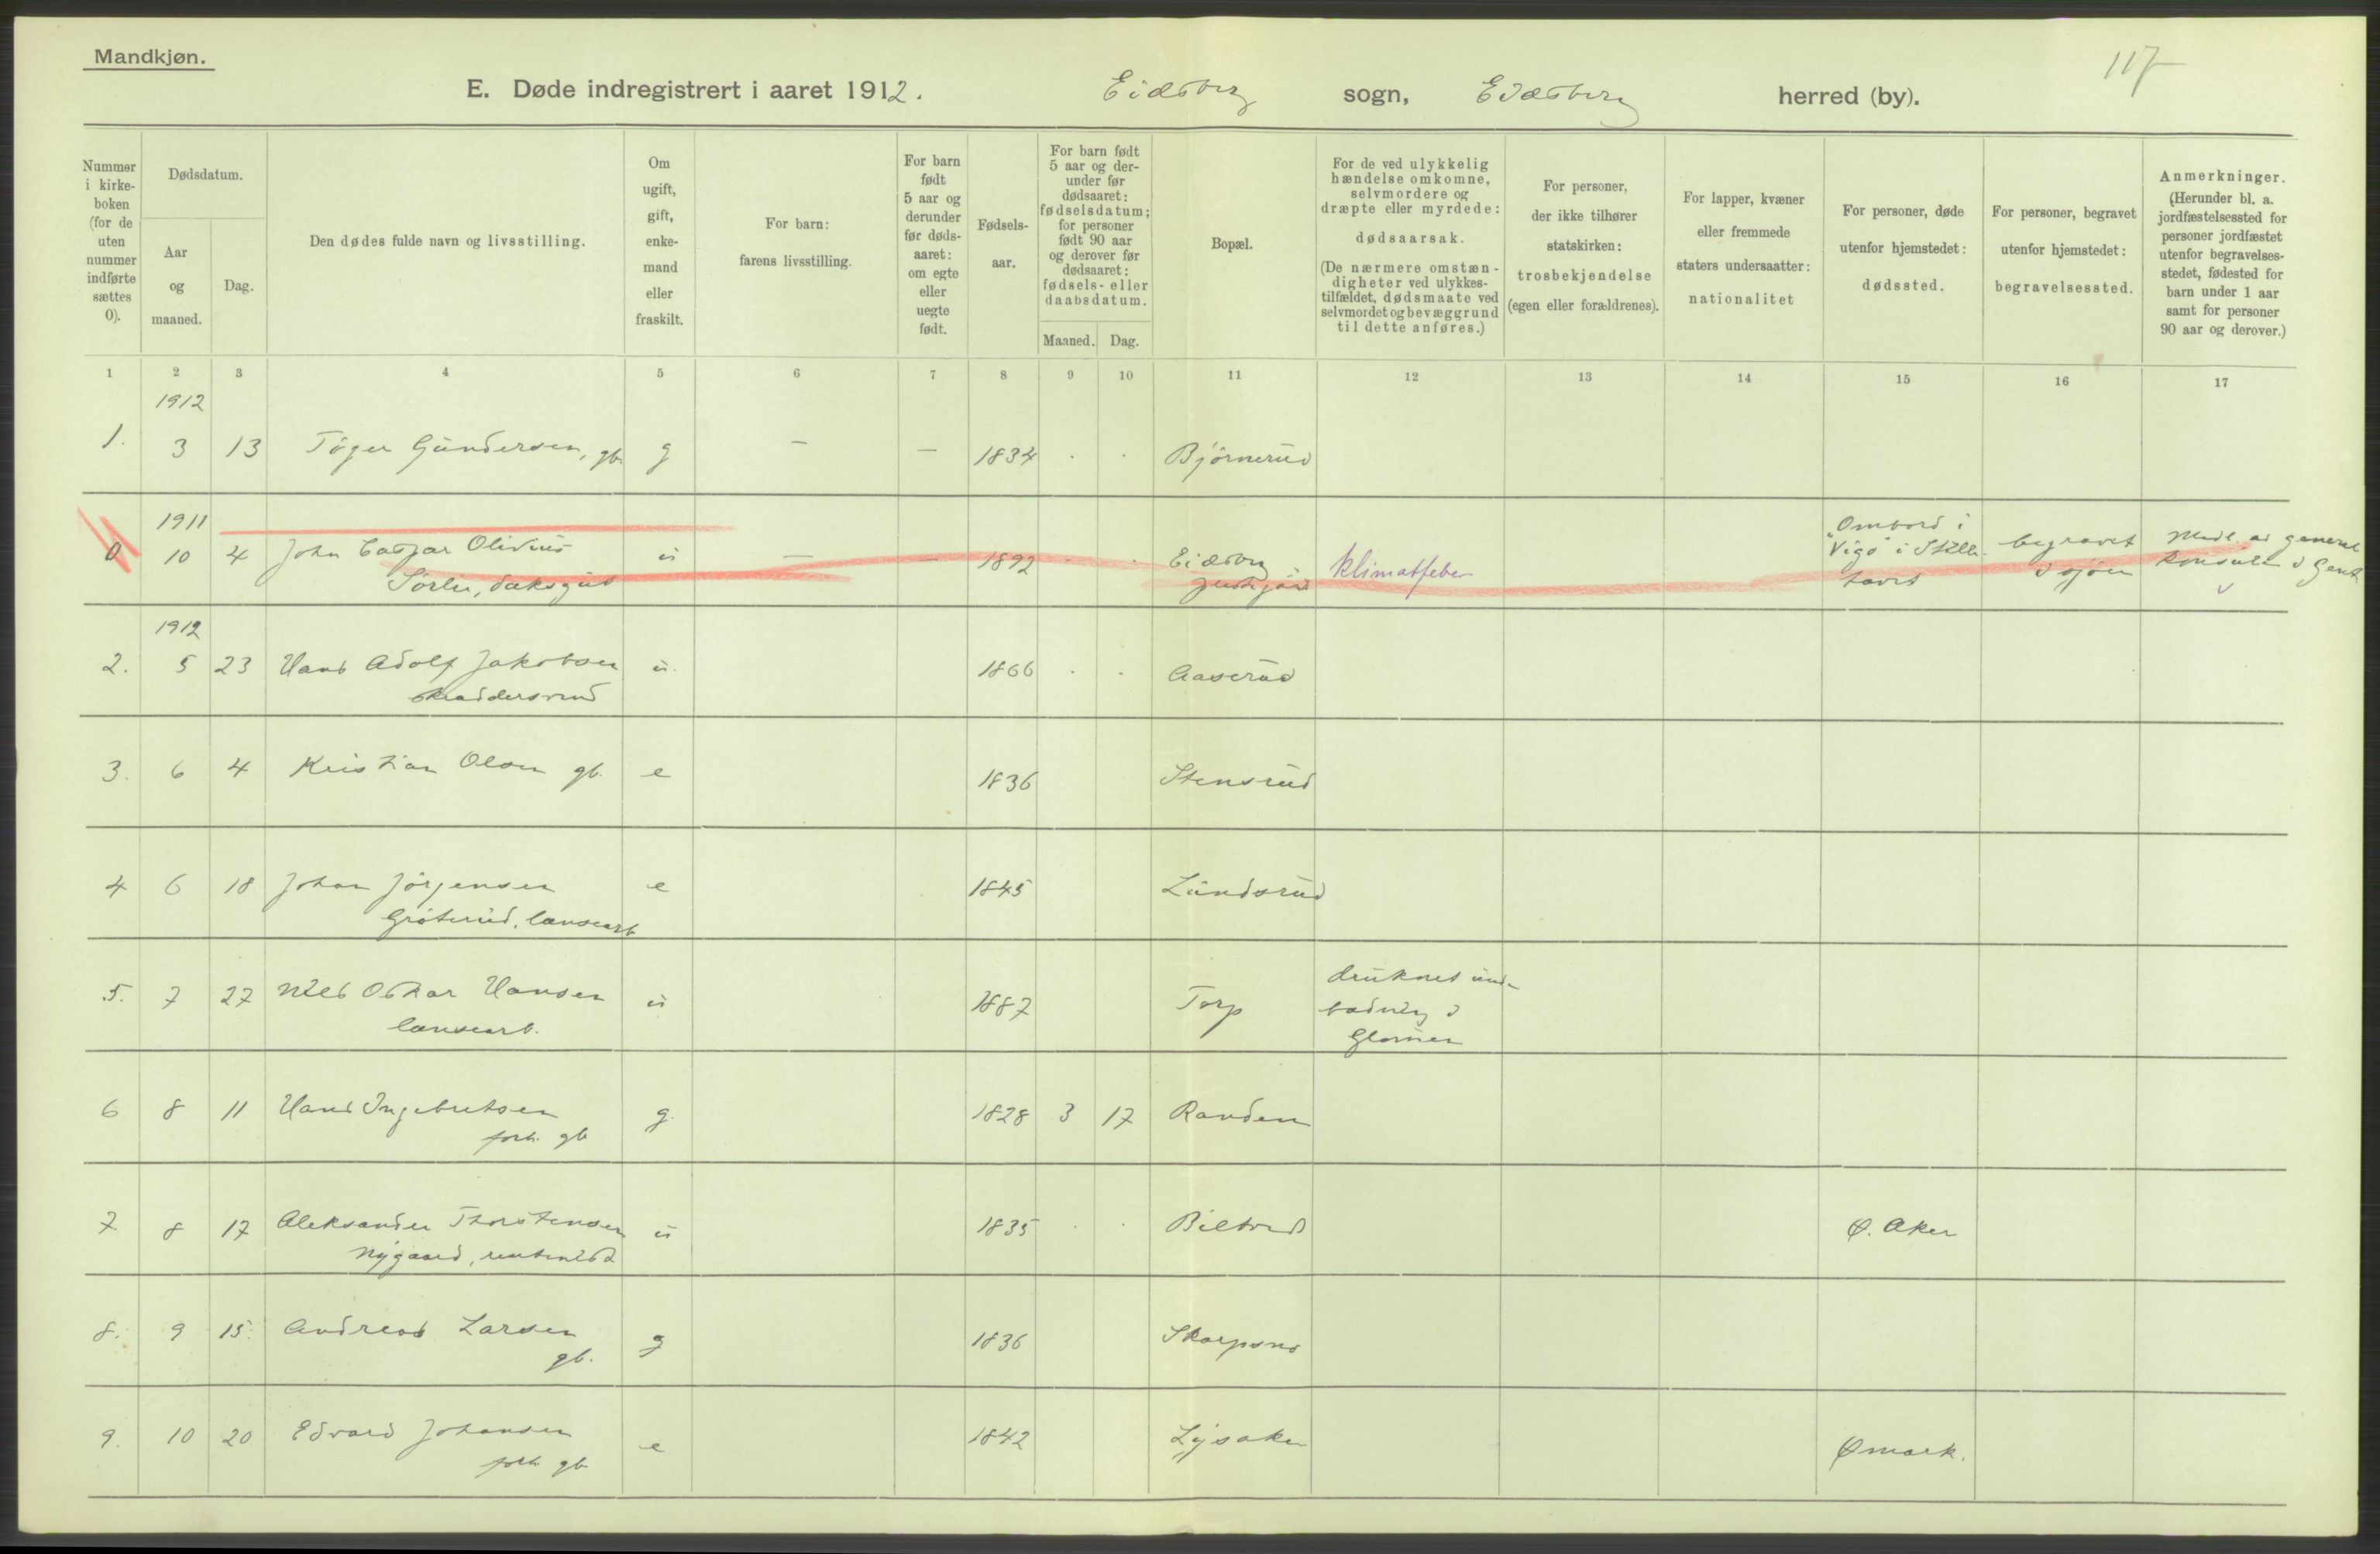 Mandkjøn.
117
E. Døde indregistrert i aaret 1912. Eidsberg sogn, Eidsberg herred (by).
Nummer i kirke-boken (for de uten nummer indførte sættes 0).
Dødsdatum.
Aar og maaned.
Dag.
Den dødes fulde navn og livsstilling.
Om ugift, gift, enke-mand eller fraskilt.
For barn: farens livsstilling.
For barn født 5 aar og derunder før døds-aaret: om egte eller uegte født.
Fødsels-aar.
For barn født 5 aar og der-under før dødsaaret: fødselsdatum; for personer født 90 aar og derover før dødsaaret: fødsels- eller daabsdatum.
Maaned. Dag.
Bopæl.
For de ved ulykkelig hændelse omkomne, selvmordere og dræpte eller myrdede: dødsaarsak. (De nærmere omstæn-digheter ved ulykkes-tilfældet, dødsmaate ved selvmordet og bevæggrund til dette anføres.)
For personer, der ikke tilhører statskirken: trosbekjendelse (egen eller forældrenes).
For lapper, kvæner eller fremmede staters undersaatter: nationalitet
For personer, døde utenfor hjemstedet: dødssted.
For personer, begravet utenfor hjemstedet: begravelsessted.
Anmerkninger. (Herunder bl. a. jordfæstelsessted for personer jordfæstet utenfor begravelses-stedet, fødested for barn under 1 aar samt for personer 90 aar og derover.)
1 2 3 4 5 6 7 8 9 10 11 12 13 14 15 16 17
1912
1. 3 13 Töger Gundersen, gb. g — — 1834 . . Bjørnerud
1911
0 10 4 John Caspar Olivius ú — — 1892 . . Eidsberg klimatfeber Ombord i "Vigo" i Stille havet begravet i sjøen Medl. av general konsulen i Genua
Sørlie, dæksgut
1912
2. 5 23 Hans Adolf Jakobsen ú. 1866 . . Aaserud
skræddersvend
3. 6 4 Kristian Olsen gb. e 1836 Stensrud
4 6 18 Johan Jörgensen e 1845 Lundsrud
Gröterud, lænsearb
5. 7 27 Nils Oskar Hansen ú 1887 Torp druknet und. badning i Glommen
lænsearb.
6 8 11 Hans Ingebretsen g. 1828 3 17 Randem
forh. gb
7 8 17 Aleksander Thorstensen ú 1835 . . Biltved Ø. Aker
Nygaard, rentenist
8. 9 15. Andreas Larsen g 1836 Skarpsno
gb.
9. 10 20 Edvard Johansen e 1842 Lysaker Ømark.
forh gb